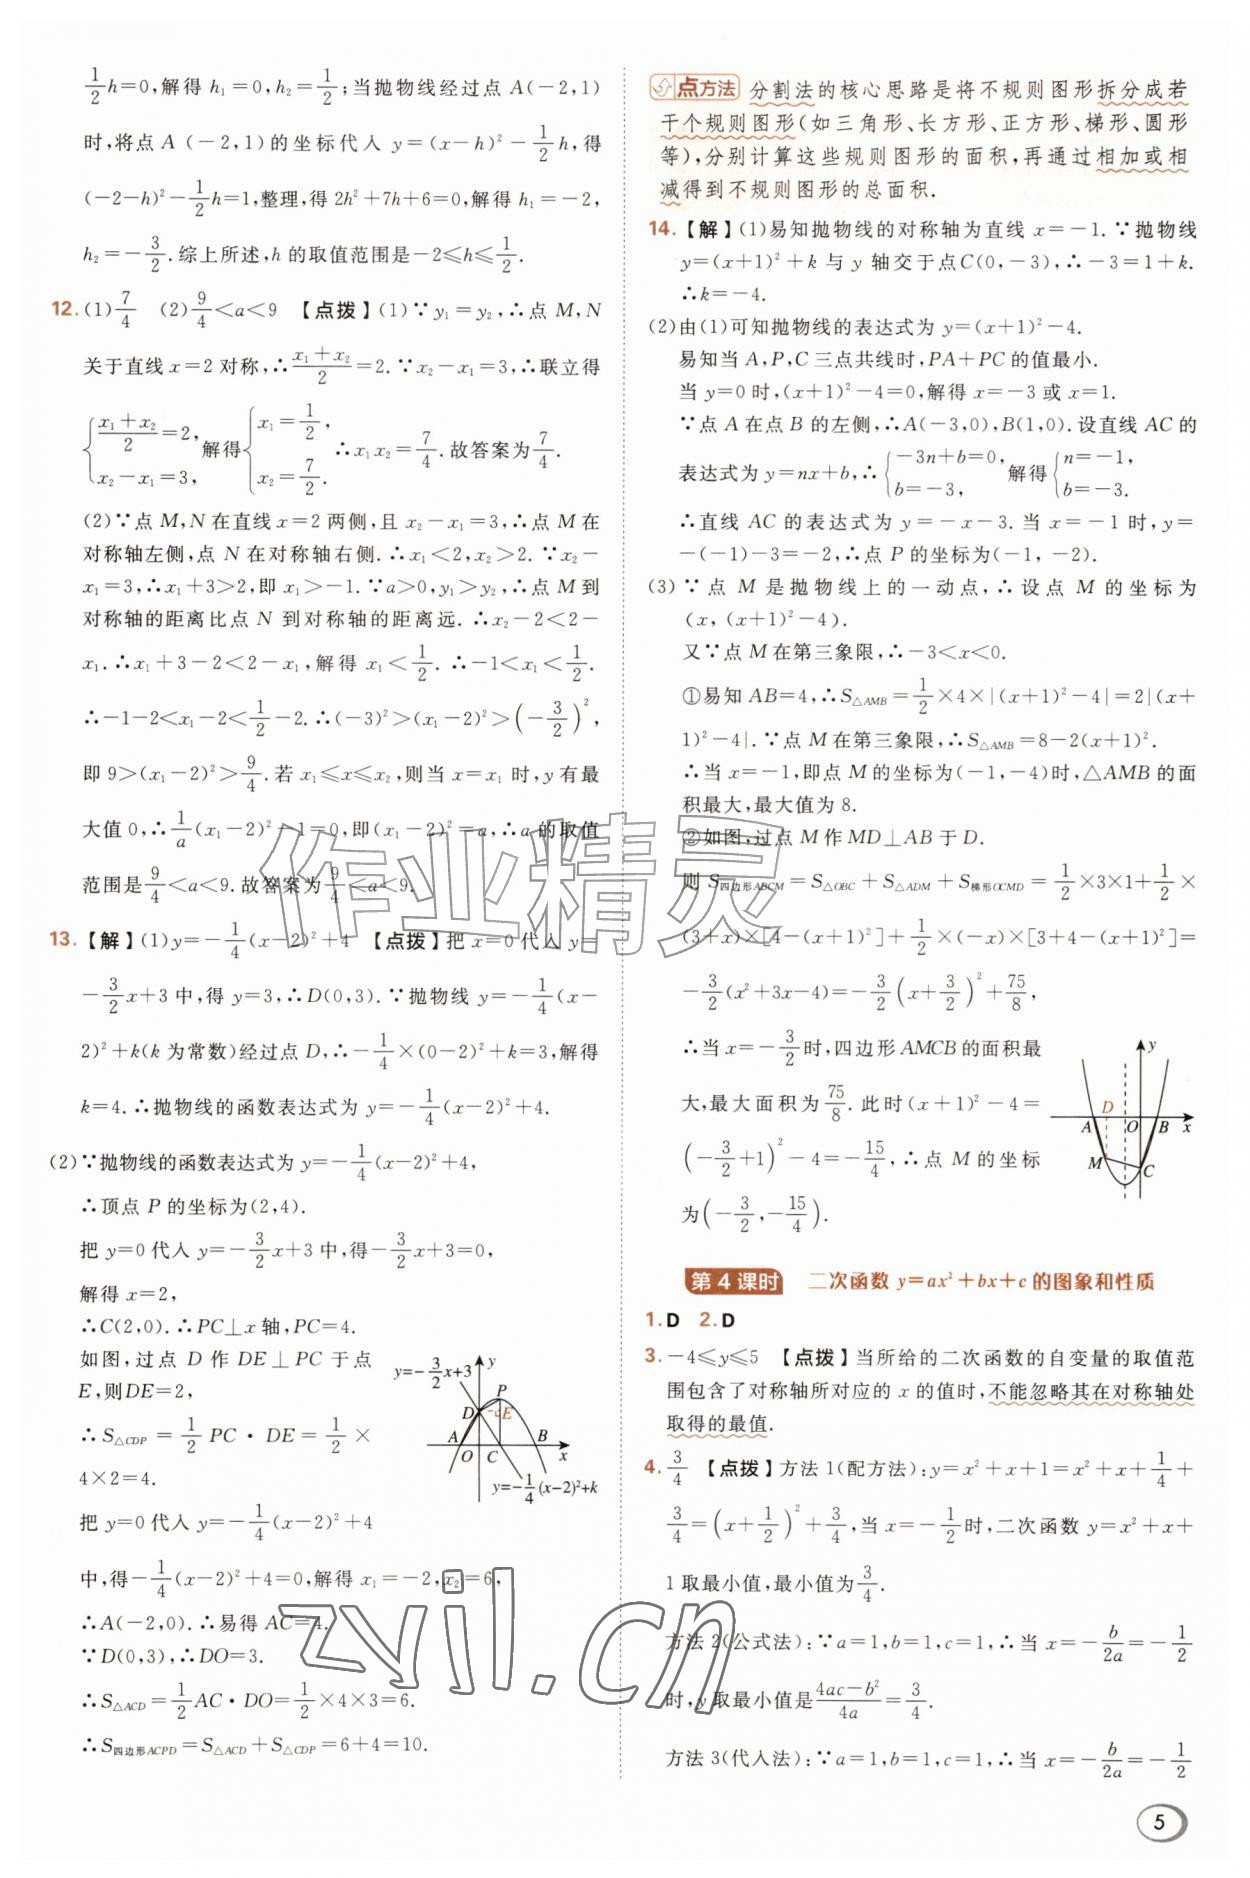 1/2 h=0,解得 h₁=0,h₂=1/2;当抛物线经过点 A(-2,1)
时,将点 A(-2,1)的坐标代入 y=(x-h)²-1/2 h,得
(-2-h)²-1/2 h=1,整理,得 2h²+7h+6=0,解得 h₁=-2,
h₂=-3/2.综上所述,h 的取值范围是-2≤h≤1/2.
12.(1)7/4 (2)9/4<a<9 【点拨】(1)∵y₁=y₂,∴点 M,N
关于直线 x=2 对称,∴(x₁+x₂)/2=2.∵x₂-x₁=3,∴联立得
{(x₁+x₂)/2=2, x₂-x₁=3, 解得{x₁=1/2, x₂=7/2. ∴x₁x₂=7/4.故答案为7/4.
(2)∵点 M,N 在直线 x=2 两侧,且 x₂-x₁=3,∴点 M 在
对称轴左侧,点 N 在对称轴右侧.∴x₁<2,x₂>2.∵x₂-
x₁=3,∴x₁+3>2,即 x₁>-1.∵a>0,y₁>y₂,∴点 M 到
对称轴的距离比点 N 到对称轴的距离远.∴x₂-2<2-
x₁.∴x₁+3-2<2-x₁,解得 x₁<1/2.∴-1<x₁<1/2.
∴-1-2<x₁-2<1/2-2.∴(-3)²>(x₁-2)²>(-3/2)²,
即 9>(x₁-2)²>9/4.若 x₁≤x≤x₂,则当 x=x₁ 时,y 有最
大值 0,∴1/a(x₁-2)²-1=0,即(x₁-2)²=a,∴a 的取值
范围是9/4<a<9.故答案为9/4<a<9.
13.【解】(1)y=-1/4(x-2)²+4 【点拨】把 x=0 代入 y=
-3/2 x+3 中,得 y=3,∴D(0,3).∵抛物线 y=-1/4(x-
2)²+k(k 为常数)经过点 D,∴-1/4×(0-2)²+k=3,解得
k=4.∴抛物线的函数表达式为 y=-1/4(x-2)²+4.
(2)∵抛物线的函数表达式为 y=-1/4(x-2)²+4,
∴顶点 P 的坐标为(2,4).
把 y=0 代入 y=-3/2 x+3 中,得-3/2 x+3=0,
解得 x=2,
∴C(2,0).∴PC⊥x 轴,PC=4.
如图,过点 D 作 DE⊥PC 于点
E,则DE=2,
∴S△CDP=1/2 PC·DE=1/2×
4×2=4.
把 y=0 代入 y=-1/4(x-2)²+4
中,得-1/4(x-2)²+4=0,解得 x₁=-2,x₂=6,
∴A(-2,0).∴易得 AC=4.
∵D(0,3),∴DO=3.
∴S△ACD=1/2 AC·DO=1/2×4×3=6.
∴S四边形ACPD=S△ACD+S△CDP=6+4=10.
y=-3/2 x+3
y
P
D
E
A
O
C
B
x
y=-1/4(x-2)²+k
点方法 分割法的核心思路是将不规则图形拆分成若
干个规则图形(如三角形、长方形、正方形、梯形、圆形
等),分别计算这些规则图形的面积,再通过相加或相
减得到不规则图形的总面积.
14.【解】(1)易知抛物线的对称轴为直线 x=-1.∵抛物线
y=(x+1)²+k 与 y 轴交于点C(0,-3),∴-3=1+k.
∴k=-4.
(2)由(1)可知抛物线的表达式为 y=(x+1)²-4.
易知当 A,P,C 三点共线时,PA+PC 的值最小.
当 y=0 时,(x+1)²-4=0,解得 x=-3 或 x=1.
∵点 A 在点 B 的左侧,∴A(-3,0),B(1,0).设直线 AC 的
表达式为 y=nx+b,∴{-3n+b=0, b=-3, 解得{n=-1, b=-3.
∴直线 AC 的表达式为 y=-x-3.当 x=-1 时,y=
-(-1)-3=-2,∴点 P 的坐标为(-1,-2).
(3)∵点 M 是抛物线上的一动点,∴设点 M 的坐标为
(x,(x+1)²-4).
又∵点 M 在第三象限,∴-3<x<0.
①易知 AB=4,∴S△AMB=1/2×4×|(x+1)²-4|=2|(x+
1)²-4|.∵点 M 在第三象限,∴S△AMB=8-2(x+1)².
∴当 x=-1,即点 M 的坐标为(-1,-4)时,△AMB 的面
积最大,最大值为 8.
②如图,过点 M 作 MD⊥AB 于 D.
则 S四边形ABCM=S△OBC+S△ADM+S梯形OCMD=1/2×3×1+1/2×
(3+x)×[4-(x+1)²]+1/2×(-x)×[3+4-(x+1)²]=
-3/2(x²+3x-4)=-3/2(x+3/2)²+75/8,
∴当 x=-3/2时,四边形 AMCB 的面积最
大,最大面积为75/8.此时(x+1)²-4=
(-3/2+1)²-4=-15/4,∴点 M 的坐标
为(-3/2,-15/4).
y
D
A
O
B
x
M
C
第 4 课时 二次函数 y=ax²+bx+c 的图象和性质
1.D 2.D
3.-4≤y≤5 【点拨】当所给的二次函数的自变量的取值范
围包含了对称轴所对应的 x 的值时,不能忽略其在对称轴处
取得的最值.
4.3/4 【点拨】方法 1(配方法):y=x²+x+1=x²+x+1/4+
3/4=(x+1/2)²+3/4,当 x=-1/2时,二次函数 y=x²+x+
1 取最小值,最小值为3/4.
方法 2(公式法):∵a=1,b=1,c=1,∴当 x=-b/2a=-1/2
时,y 取最小值是(4ac-b²)/4a=3/4.
方法 3(代入法):∵a=1,b=1,c=1,∴当 x=-b/2a=-1/2
5
作业精灵
zyil.cn